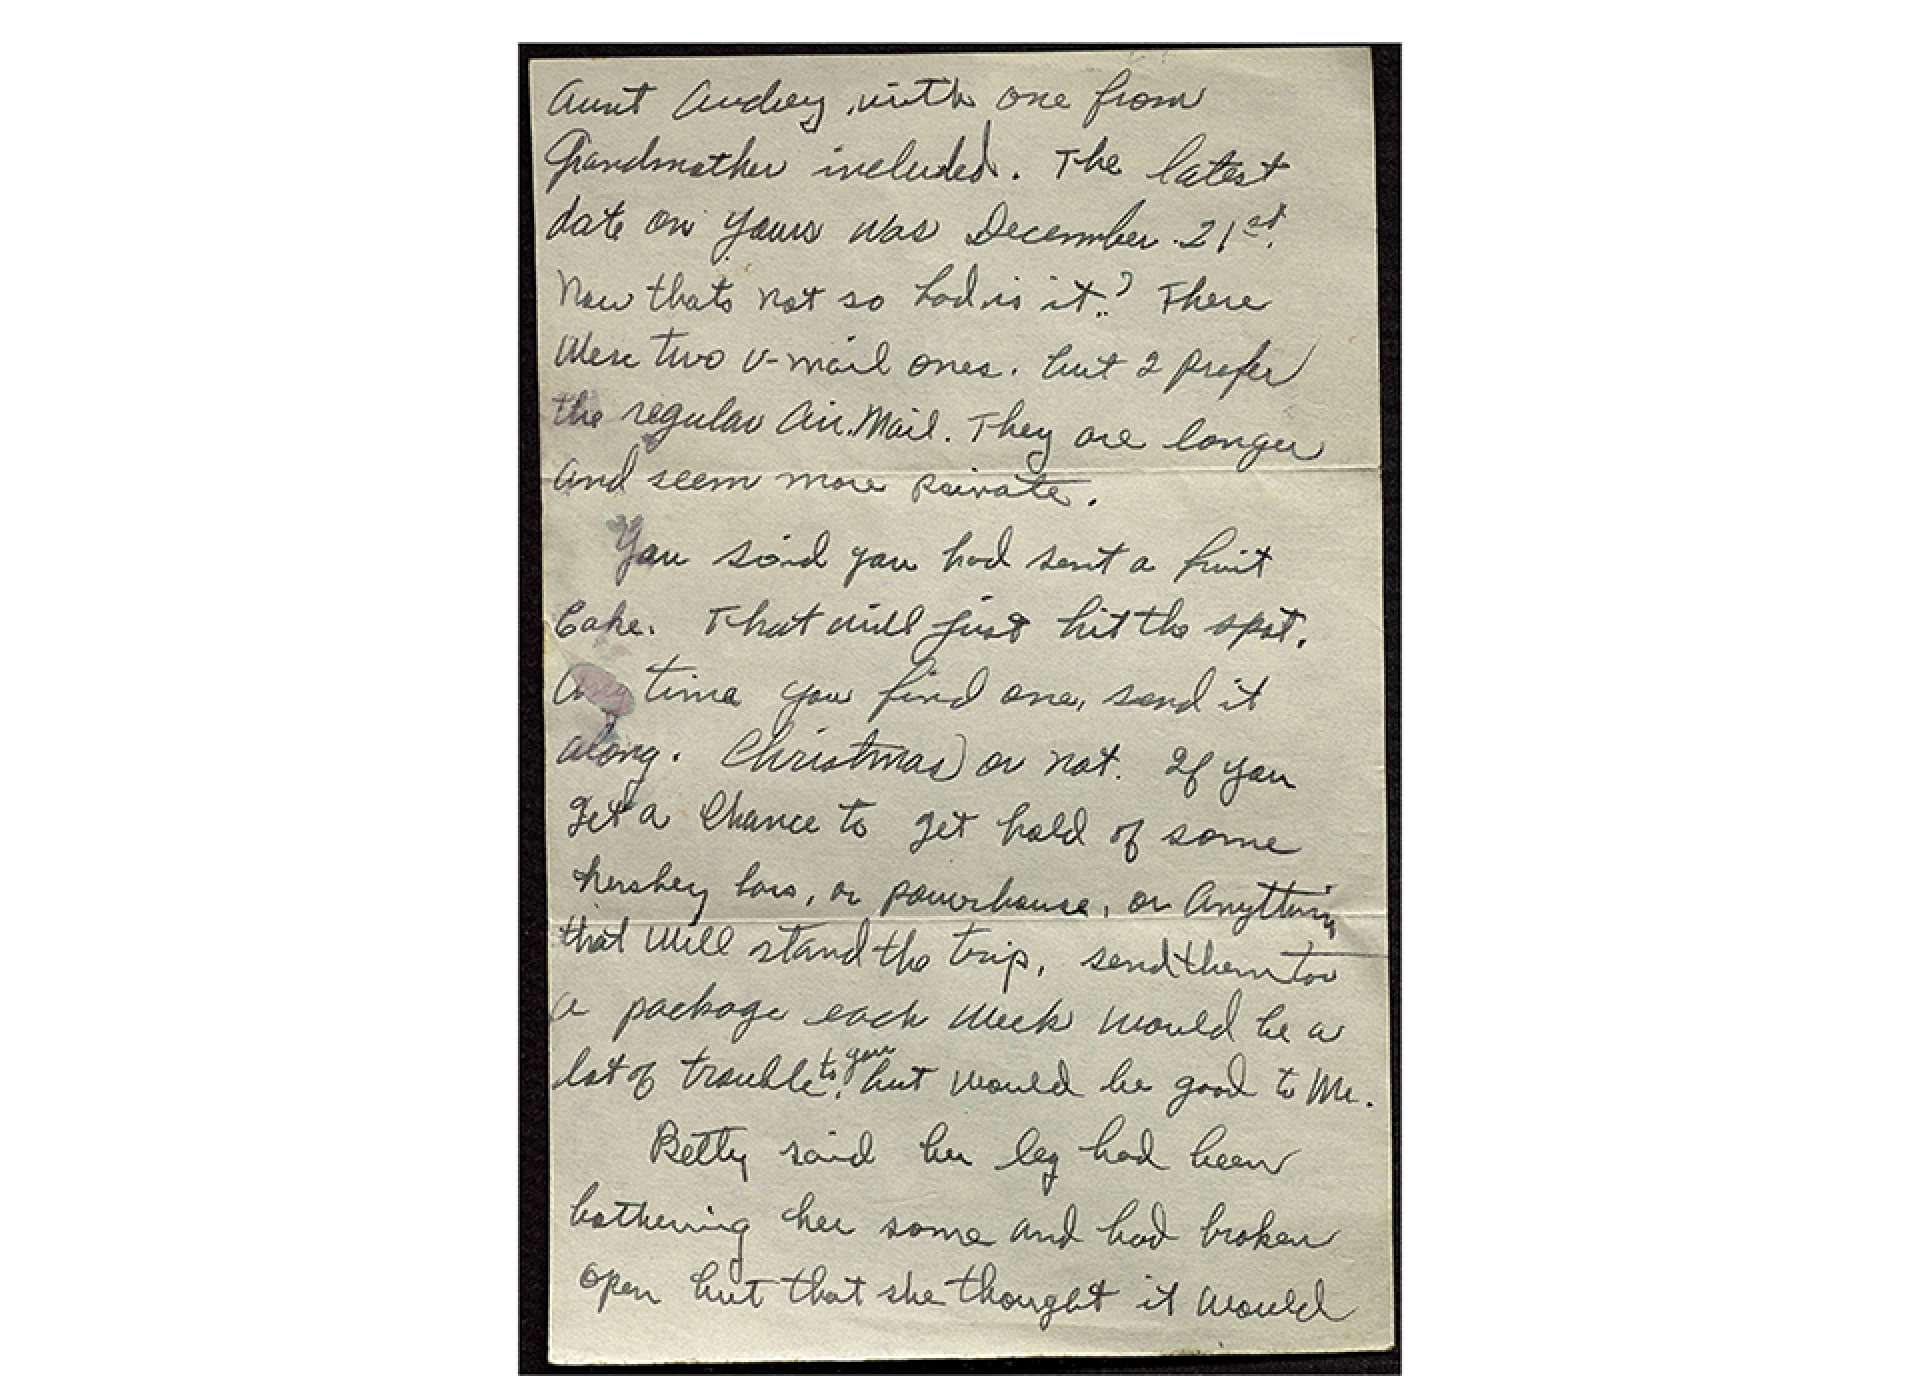 Aunt Audrey, with one from
Grandmother included. The latest
date on yours was December 21st.
Now thats not so bad is it? There
Were two V-mail ones. but I prefer
the regular Air Mail. They are longer
and seem more private.
You said you had sent a fruit
Cake. That will just hit the spot.
Any time you find one, send it
along. Christmas or not. If you
get a Chance to get hold of some
hershey bars, or powerhouse, or Anything
that Will stand the trip, send them too
a package each Week would be a
lot of trouble to you, but would be good to Me.
Betty said her leg had been
bothering her some and had broken
open but that she thought it would